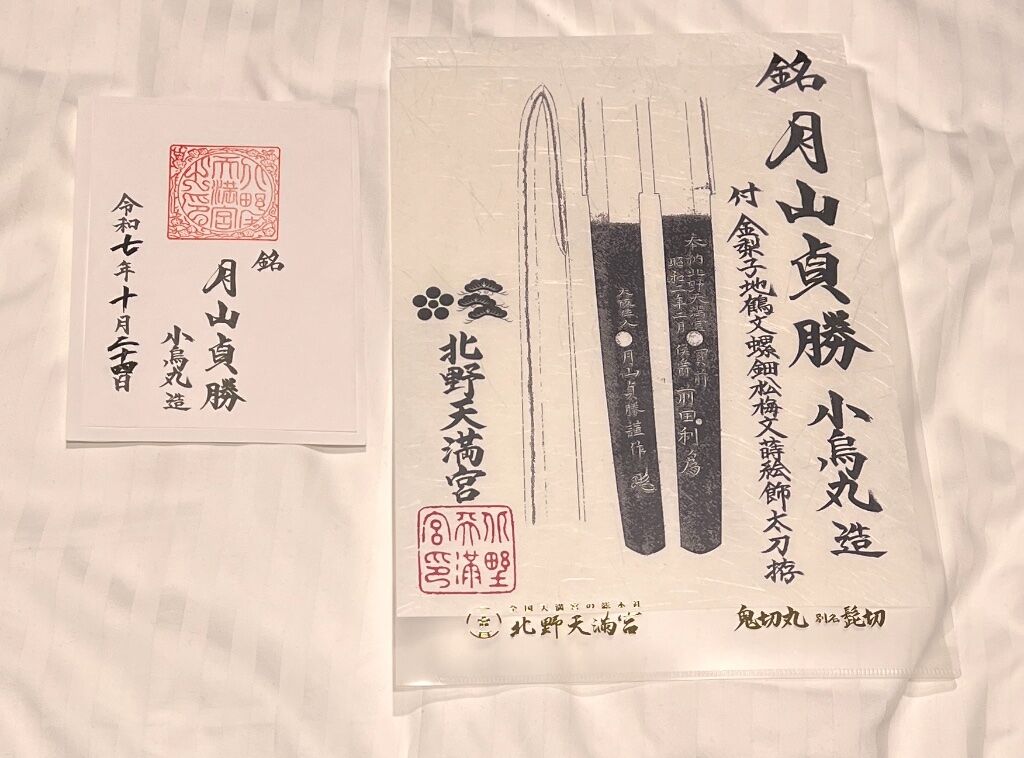 北野天満宮
銘
月山貞勝
小烏丸造
令和七年十月二十四日
銘 月山貞勝 小烏丸造
付 金梨子地鶴文螺鈿松梅文蒔絵飾太刀拵
奉納北野天満宮寳前
月山貞勝謹作
北野天満宮
北野天満宮印
全国天満宮の総本社
北野天満宮
鬼切丸 別名 髭切